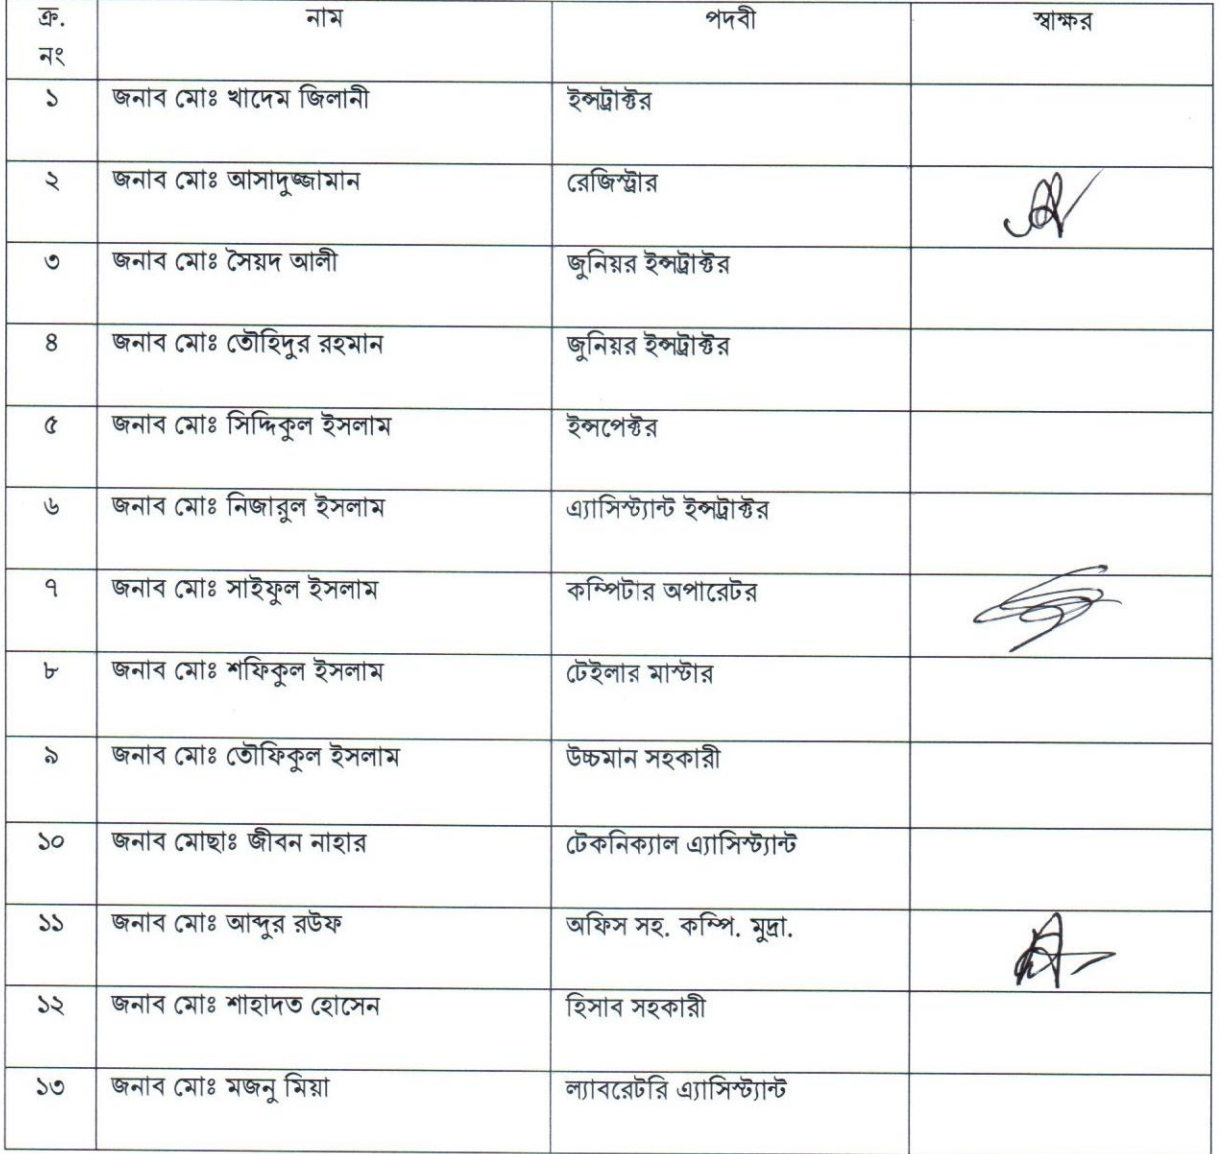 ক্র. নাম পদবী স্বাক্ষর
নং
১ জনাব মোঃ খাদেম জিলানী ইন্সট্রাক্টর
২ জনাব মোঃ আসাদুজ্জামান রেজিস্ট্রার
৩ জনাব মোঃ সৈয়দ আলী জুনিয়র ইন্সট্রাক্টর
৪ জনাব মোঃ তৌহিদুর রহমান জুনিয়র ইন্সট্রাক্টর
৫ জনাব মোঃ সিদ্দিকুল ইসলাম ইন্সপেক্টর
৬ জনাব মোঃ নিজারুল ইসলাম এ্যাসিস্ট্যান্ট ইন্সট্রাক্টর
৭ জনাব মোঃ সাইফুল ইসলাম কম্পিটার অপারেটর
৮ জনাব মোঃ শফিকুল ইসলাম টেইলার মাস্টার
৯ জনাব মোঃ তৌফিকুল ইসলাম উচ্চমান সহকারী
১০ জনাব মোছাঃ জীবন নাহার টেকনিক্যাল এ্যাসিস্ট্যান্ট
১১ জনাব মোঃ আব্দুর রউফ অফিস সহ. কম্পি. মুদ্রা.
১২ জনাব মোঃ শাহাদত হোসেন হিসাব সহকারী
১৩ জনাব মোঃ মজনু মিয়া ল্যাবরেটরি এ্যাসিস্ট্যান্ট